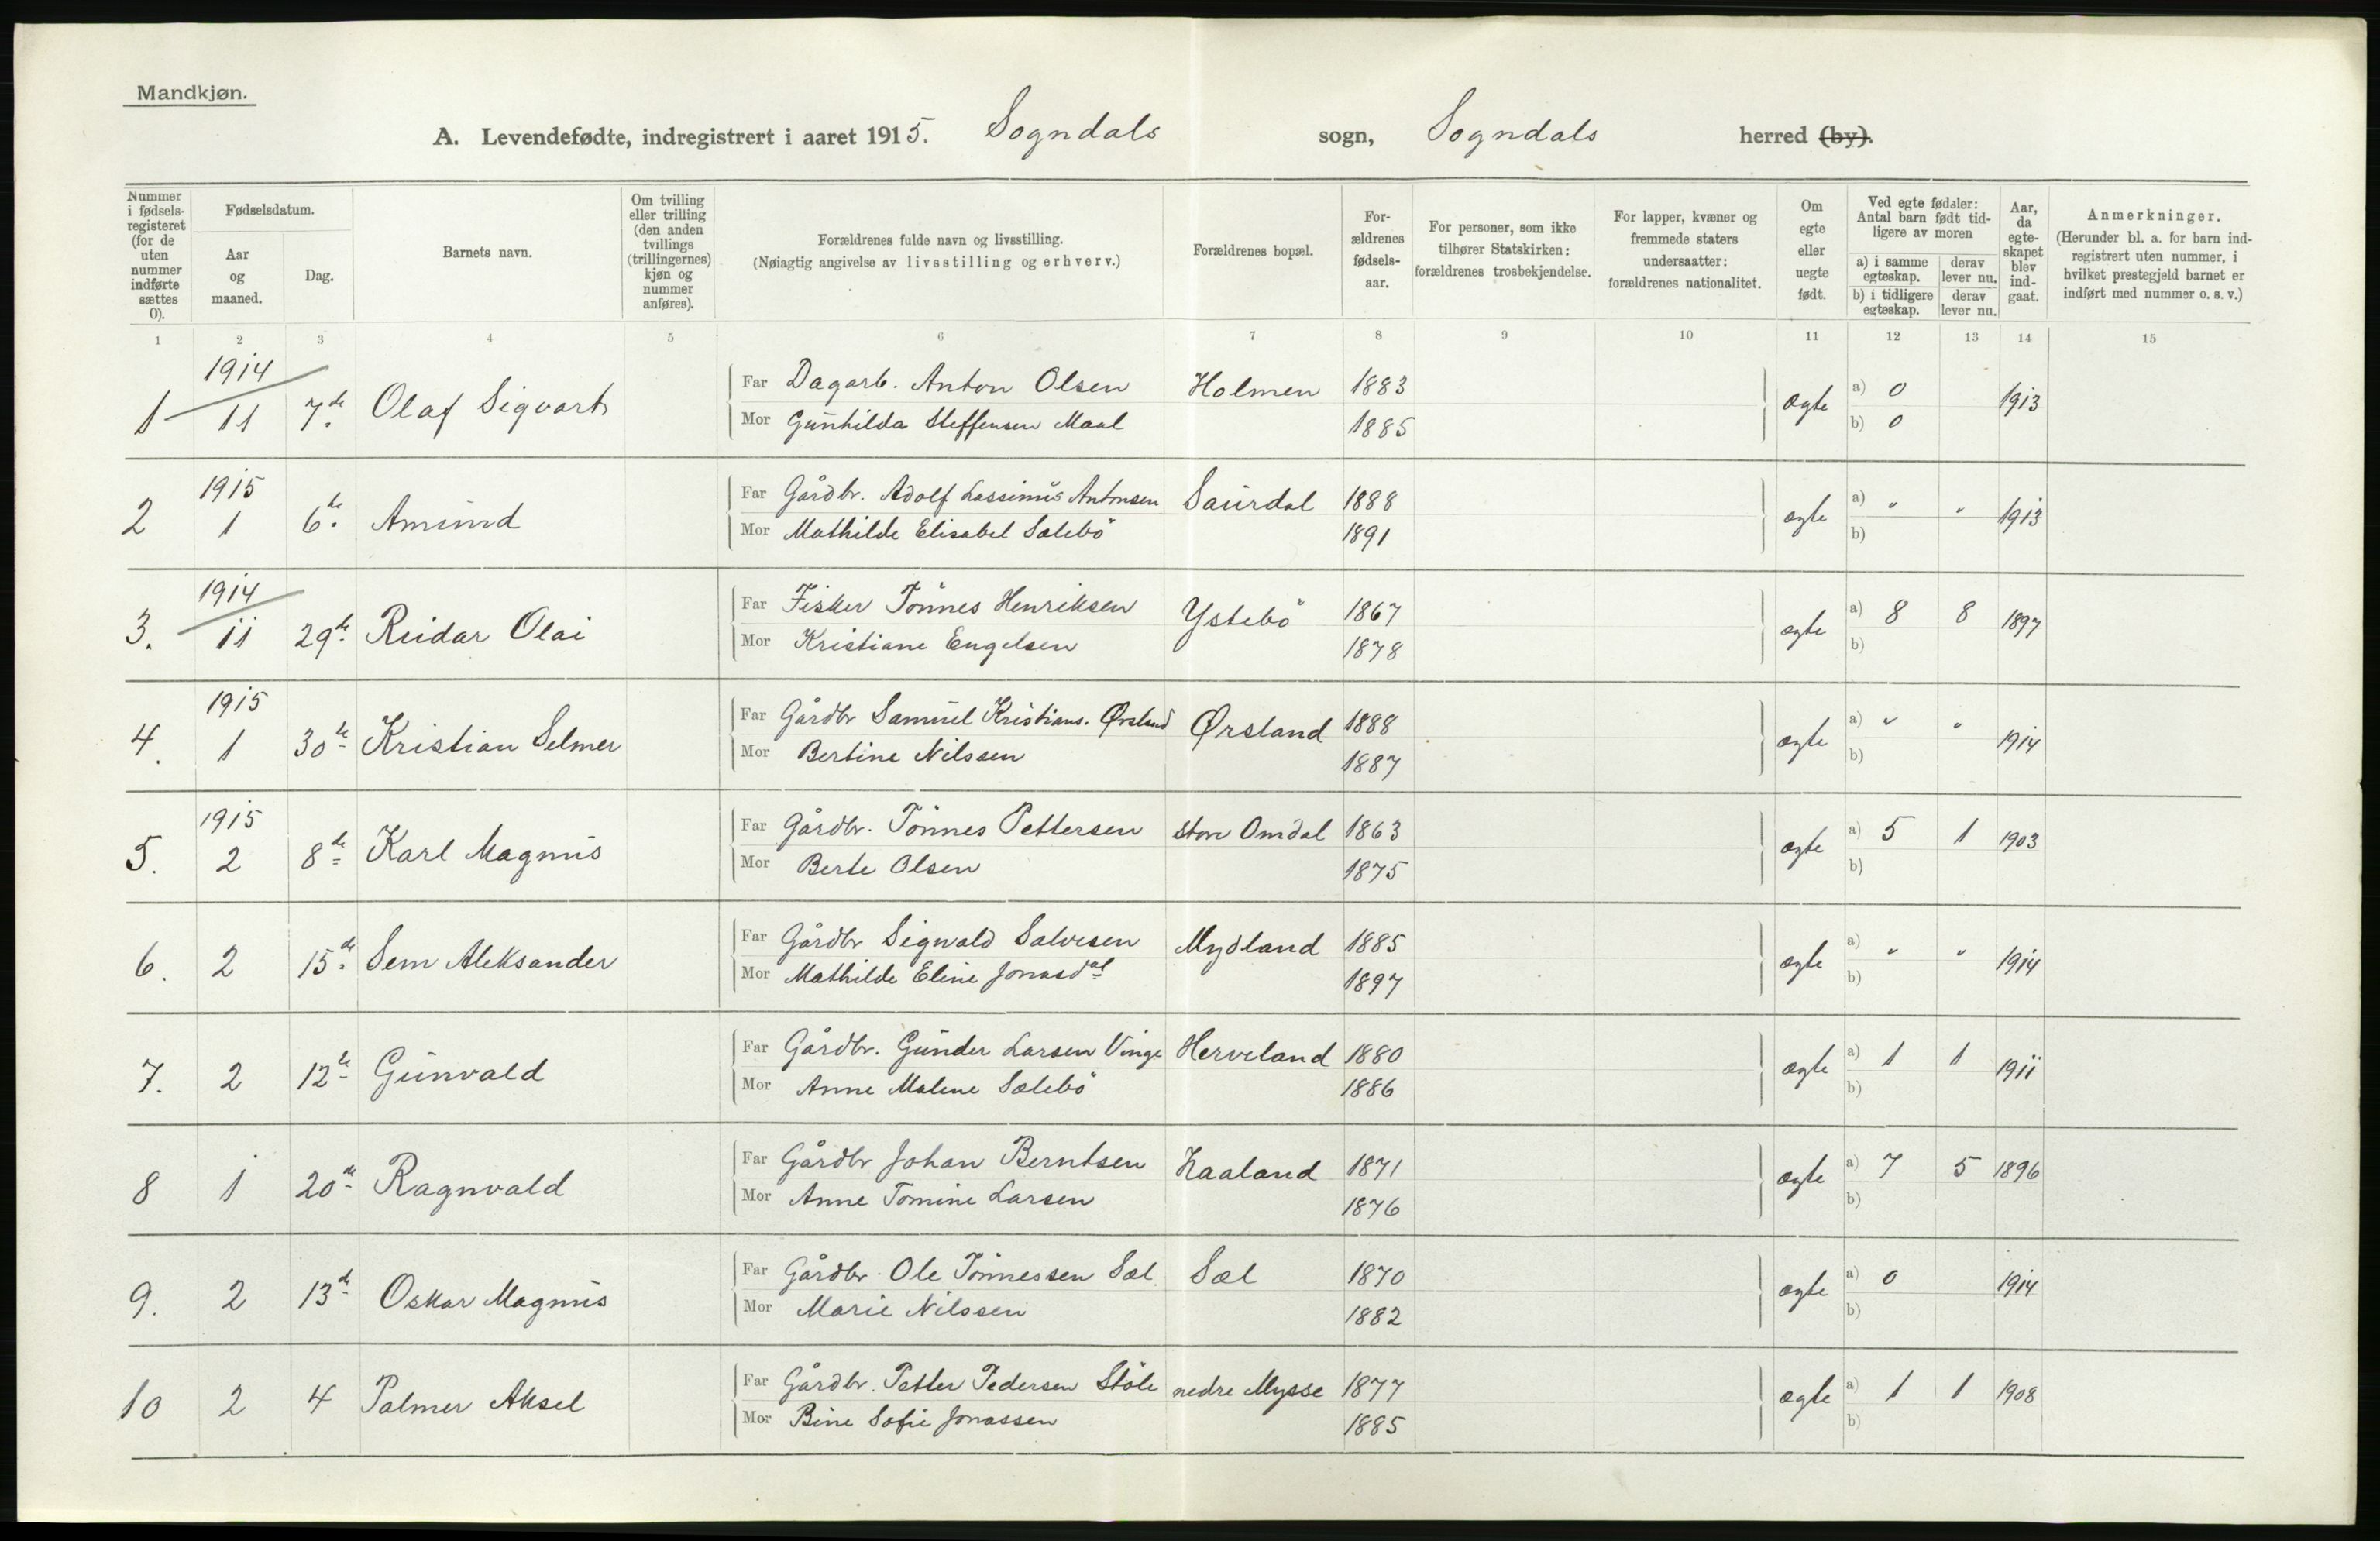 Mandkjøn.
A. Levendefødte, indregistrert i aaret 1915. Sogndals sogn, Sogndals herred (by).
Nummer i fødselsregisteret (for de uten nummer indførte sættes 0).
Fødselsdatum.
Aar og maaned.
Dag.
Barnets navn.
Om tvilling eller trilling (den anden tvillings (trillingernes) kjøn og nummer anføres).
Forældrenes fulde navn og livsstilling.
(Nøiagtig angivelse av livsstilling og erhverv.)
Forældrenes bopæl.
Forældrenes fødselsaar.
For personer, som ikke tilhører Statskirken: forældrenes trosbekjendelse.
For lapper, kvæner og fremmede staters undersaatter: forældrenes nationalitet.
Om egte eller uegte født.
Ved egte fødsler: Antal barn født tidligere av moren
a) i samme egteskap. derav lever nu.
b) i tidligere egteskap. derav lever nu.
Aar, da egteskapet blev indgaat.
Anmerkninger.
(Herunder bl. a. for barn indregistrert uten nummer, i hvilket prestegjeld barnet er indført med nummer o. s. v.)
1 2 3 4 5 6 7 8 9 10 11 12 13 14 15
1914
1 11 7de Olaf Sigvart Far Dagarb. Anton Olsen Holmen 1883 ægte a) 0 1913
Mor Gunhilda Steffensen Maal 1885 b) 0
1915
2 1 6te Amund Far Gårdbr. Adolf Lassimus Antonsen Saurdal 1888 ægte a) " " 1913
Mor Mathilde Elisabet Sælebö 1891 b)
1914
3. 11 29de Reidar Olai Far Fisker Tönnes Henriksen Ystebö 1867 ægte a) 8 8 1897
Mor Kristiane Engelsen 1878 b)
1915
4. 1 30te Kristian Selmer Far Gårdbr Samuel Kristians. Ørsland Ørsland 1888 ægte a) " " 1914
Mor Bertine Nilssen 1887 b)
1915
5. 2 8de Karl Magnus Far Gårdbr. Tönnes Pettersen store Omdal 1863 ægte a) 5 1 1903
Mor Berte Olsen 1875 b)
6. 2 15de Sem Aleksander Far Gårdbr Sigvald Salvesen Mydland 1885 ægte a) " " 1914
Mor Mathilde Eline Jonasdat 1897 b)
7. 2 12te Gunvald Far Gårdbr. Gunder Larsen Vinge Herveland 1880 ægte a) 1 1 1911
Mor Anne Malene Sælebö 1886 b)
8 1 20de Ragnvald Far Gårdbr Johan Berntsen Haaland 1871 ægte a) 7 5 1896
Mor Anne Tomine Larsen 1876 b)
9. 2 13de Oskar Magnus Far Gårdbr. Ole Tönnessen Sæl Sæl 1870 ægte a) 0 1914
Mor Marie Nilssen 1882 b)
10 2 4 Palmer Aksel Far Gårdbr. Petter Pedersen Stöle nedre Mysse 1877 ægte a) 1 1 1908
Mor Bine Sofie Jonassen 1885 b)